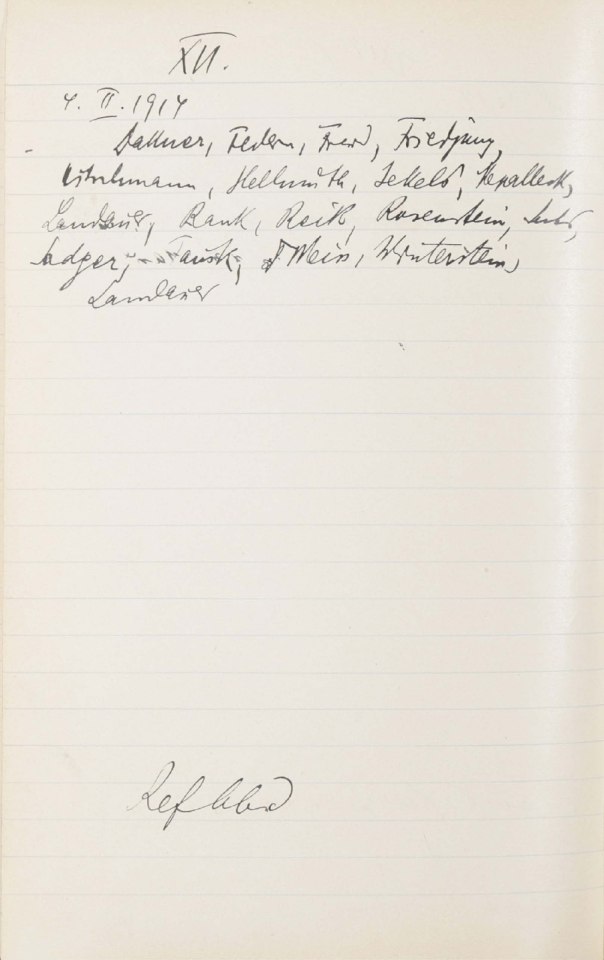 XII.
4. II. 1914
Dattner, Federn, Freud, Friedjung,
Hitschmann, Hellmuth, Jekels, Nepalleck,
Landauer, Rank, Reik, Rosenstein, Sachs,
Sadger, Tausk, Weiss, Winterstein,
Landauer
Ref Abd